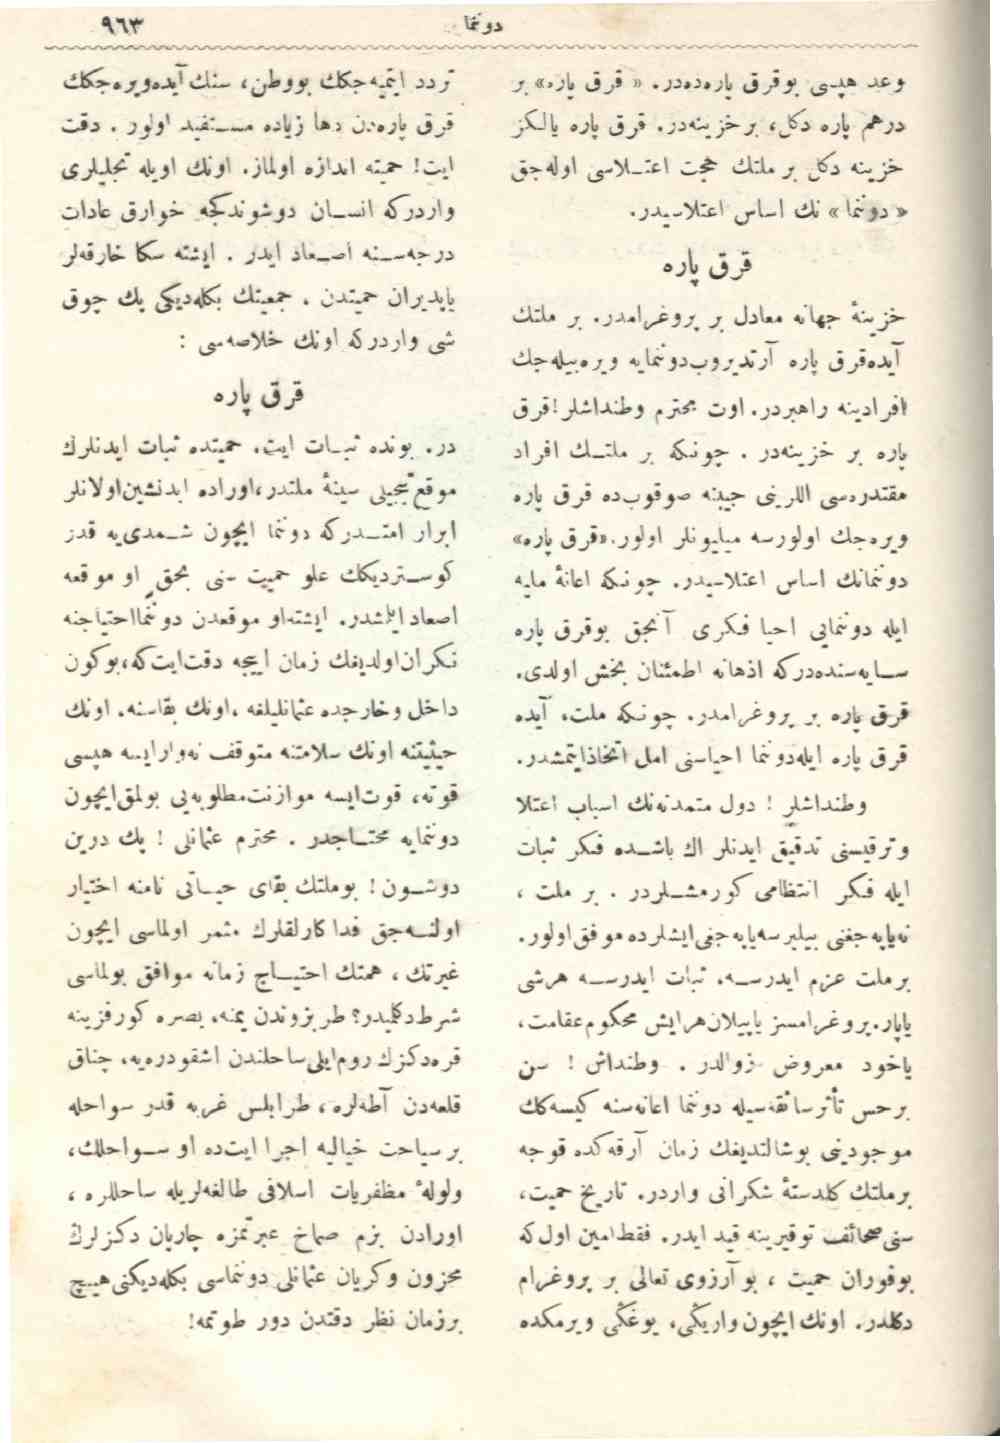 دوننما
٩٦٣
وعد هپسی بوقرق پاره‌ده‌در. « قرق پاره» بر
درهم پاره دكل، بر خزینه‌در. قرق پاره یالكز
خزینه دكل بر ملتك هجت اعتـلاسی اوله‌جق
« دوننما » نك اساس اعتلاسیدر.
قرق پاره
خزینهٔ جهانه معادل بر پروغرامدر. بر ملتك
آیده‌قرق پاره آرتدیروب‌دوننمایه ویره‌بیله‌جك
افرادینه راهبردر. اوت محترم وطنداشلر! قرق
پاره بر خزینه‌در . چونكه بر ملتـك افراد
مقتدره‌سی اللرینی جیبنه صوقوب‌ده قرق پاره
ویره‌جك اولورسه میلیونلر اولور. «قرق پاره»
دوننمانك اساس اعتلاسیدر. چونكه اعانهٔ مایه
ایله دوننمایی احیا فكری آنجق بوقرق پاره
سـایه‌سنده‌دركه اذهانه اطمئنان بخش اولدی.
قرق پاره بر پروغرامدر. چونكه ملت، آیده
قرق پاره ایله‌دوننما احیاسنی امل اتخاذایتمشدر.
وطنداشلر ! دول متمدنه‌نك اسباب اعتلا
وترقیسنی تدقیق ایدنلر اك باشـده فكر ثبات
ایله فكر انتظامی كورمشـلردر . بر ملت ،
نه‌یاپه‌جغنی بیلیرسه‌یاپه‌جغی‌ایشلرده موفق‌اولور.
بر ملت عزم ایدرسـه، ثبات ایدرسـه هرشی
یاپار. پروغرامسز یاپیلان‌هرایش محكوم‌عقامت،
یاخود معروض زوالدر . وطنداش ! سن
برحس تأثر سائقه‌سیله دوننما اعانه‌سنه كیسه‌كك
موجودینی بوشالتدیغك زمان آرقه‌كده قوجه
بر ملتك كلدستهٔ شكرانی واردر. تاریخ حمیت،
سنی صحائف توقیرینه قید ایدر. فقط‌امین اول‌كه
بوفوران حمیت ، بو آرزوی تعالی بر پروغرام
دكلدر. اونك ایچون‌واریكی، یوغكی ویرمكده
تردد ایتمیه‌جكك بووطن، سنك آیده‌ویره‌جكك
قرق پاره‌دن دها زیاده مسـتفید اولور . دقت
ایت! حمیته اندازه اولماز. اونك اویله تجلیلری
واردركه انسـان دوشوندكجه خوارق عادات
درجه‌سـنه اصـعاد ایدر . ایشته سكا خارقه‌لر
یاپدیران حمیتدن . جمعیتك بكله‌دیكی پك چوق
شی واردركه اونك خلاصه‌سی :
قرق پاره
در. بونده ثبـات ایت. حمیتده ثبات ایدنلرك
موقع تبجیلی سینهٔ ملتدر، اوراده ابدنشین‌اولانلر
ابرار امتـدركه دوننما ایچون شـمدی‌یه قدر
كوسـتردیكك علو حمیت سنی بحق او موقعه
اصعاد ایلمشدر. ایشته‌او موقعدن دوننمااحتیاجنه
نكران‌اولدیغك زمان اییجه دقت‌ایت‌كه، بوكون
داخل وخارجده عثمانلیلغه ، اونك بقاسنه. اونك
حیثیتنه اونك سلامتنه متوقف نه‌وارایسه هپسی
قوته، قوت‌ایسه موازنت‌مطلوبه‌یی بولمق‌ایچون
دوننمایه محتـاجدر . محترم عثمانلی ! پك درین
دوشـون! بوملتك بقای حیـاتی نامنه اختیار
اولنـه‌جق فداكارلقلرك مثمر اولماسی ایچون
غیرتك ، همتك احتیـاج زمانه موافق بولماسی
شرط دكلمیدر؟ طربزوندن یمنه، بصره كورفزینه
قره‌دكزك روم‌ایلی‌ساحلندن اشقودره‌یه، چناق
قلعه‌دن آطه‌لره ، طرابلس غربه قدر سواحله
بر سیاحت خیالیه اجرا ایت‌ده او سـواحلك،
ولولهٔ مظفریات اسلافی طالغه‌لریله ساحللره ،
اورادن بزم صماخ عبرتمزه چارپان دكزلرك
محزون وكریان عثمانلی دوننماسی بكله‌دیكنی‌هیـچ
برزمان نظر دقتدن دور طوتمه!